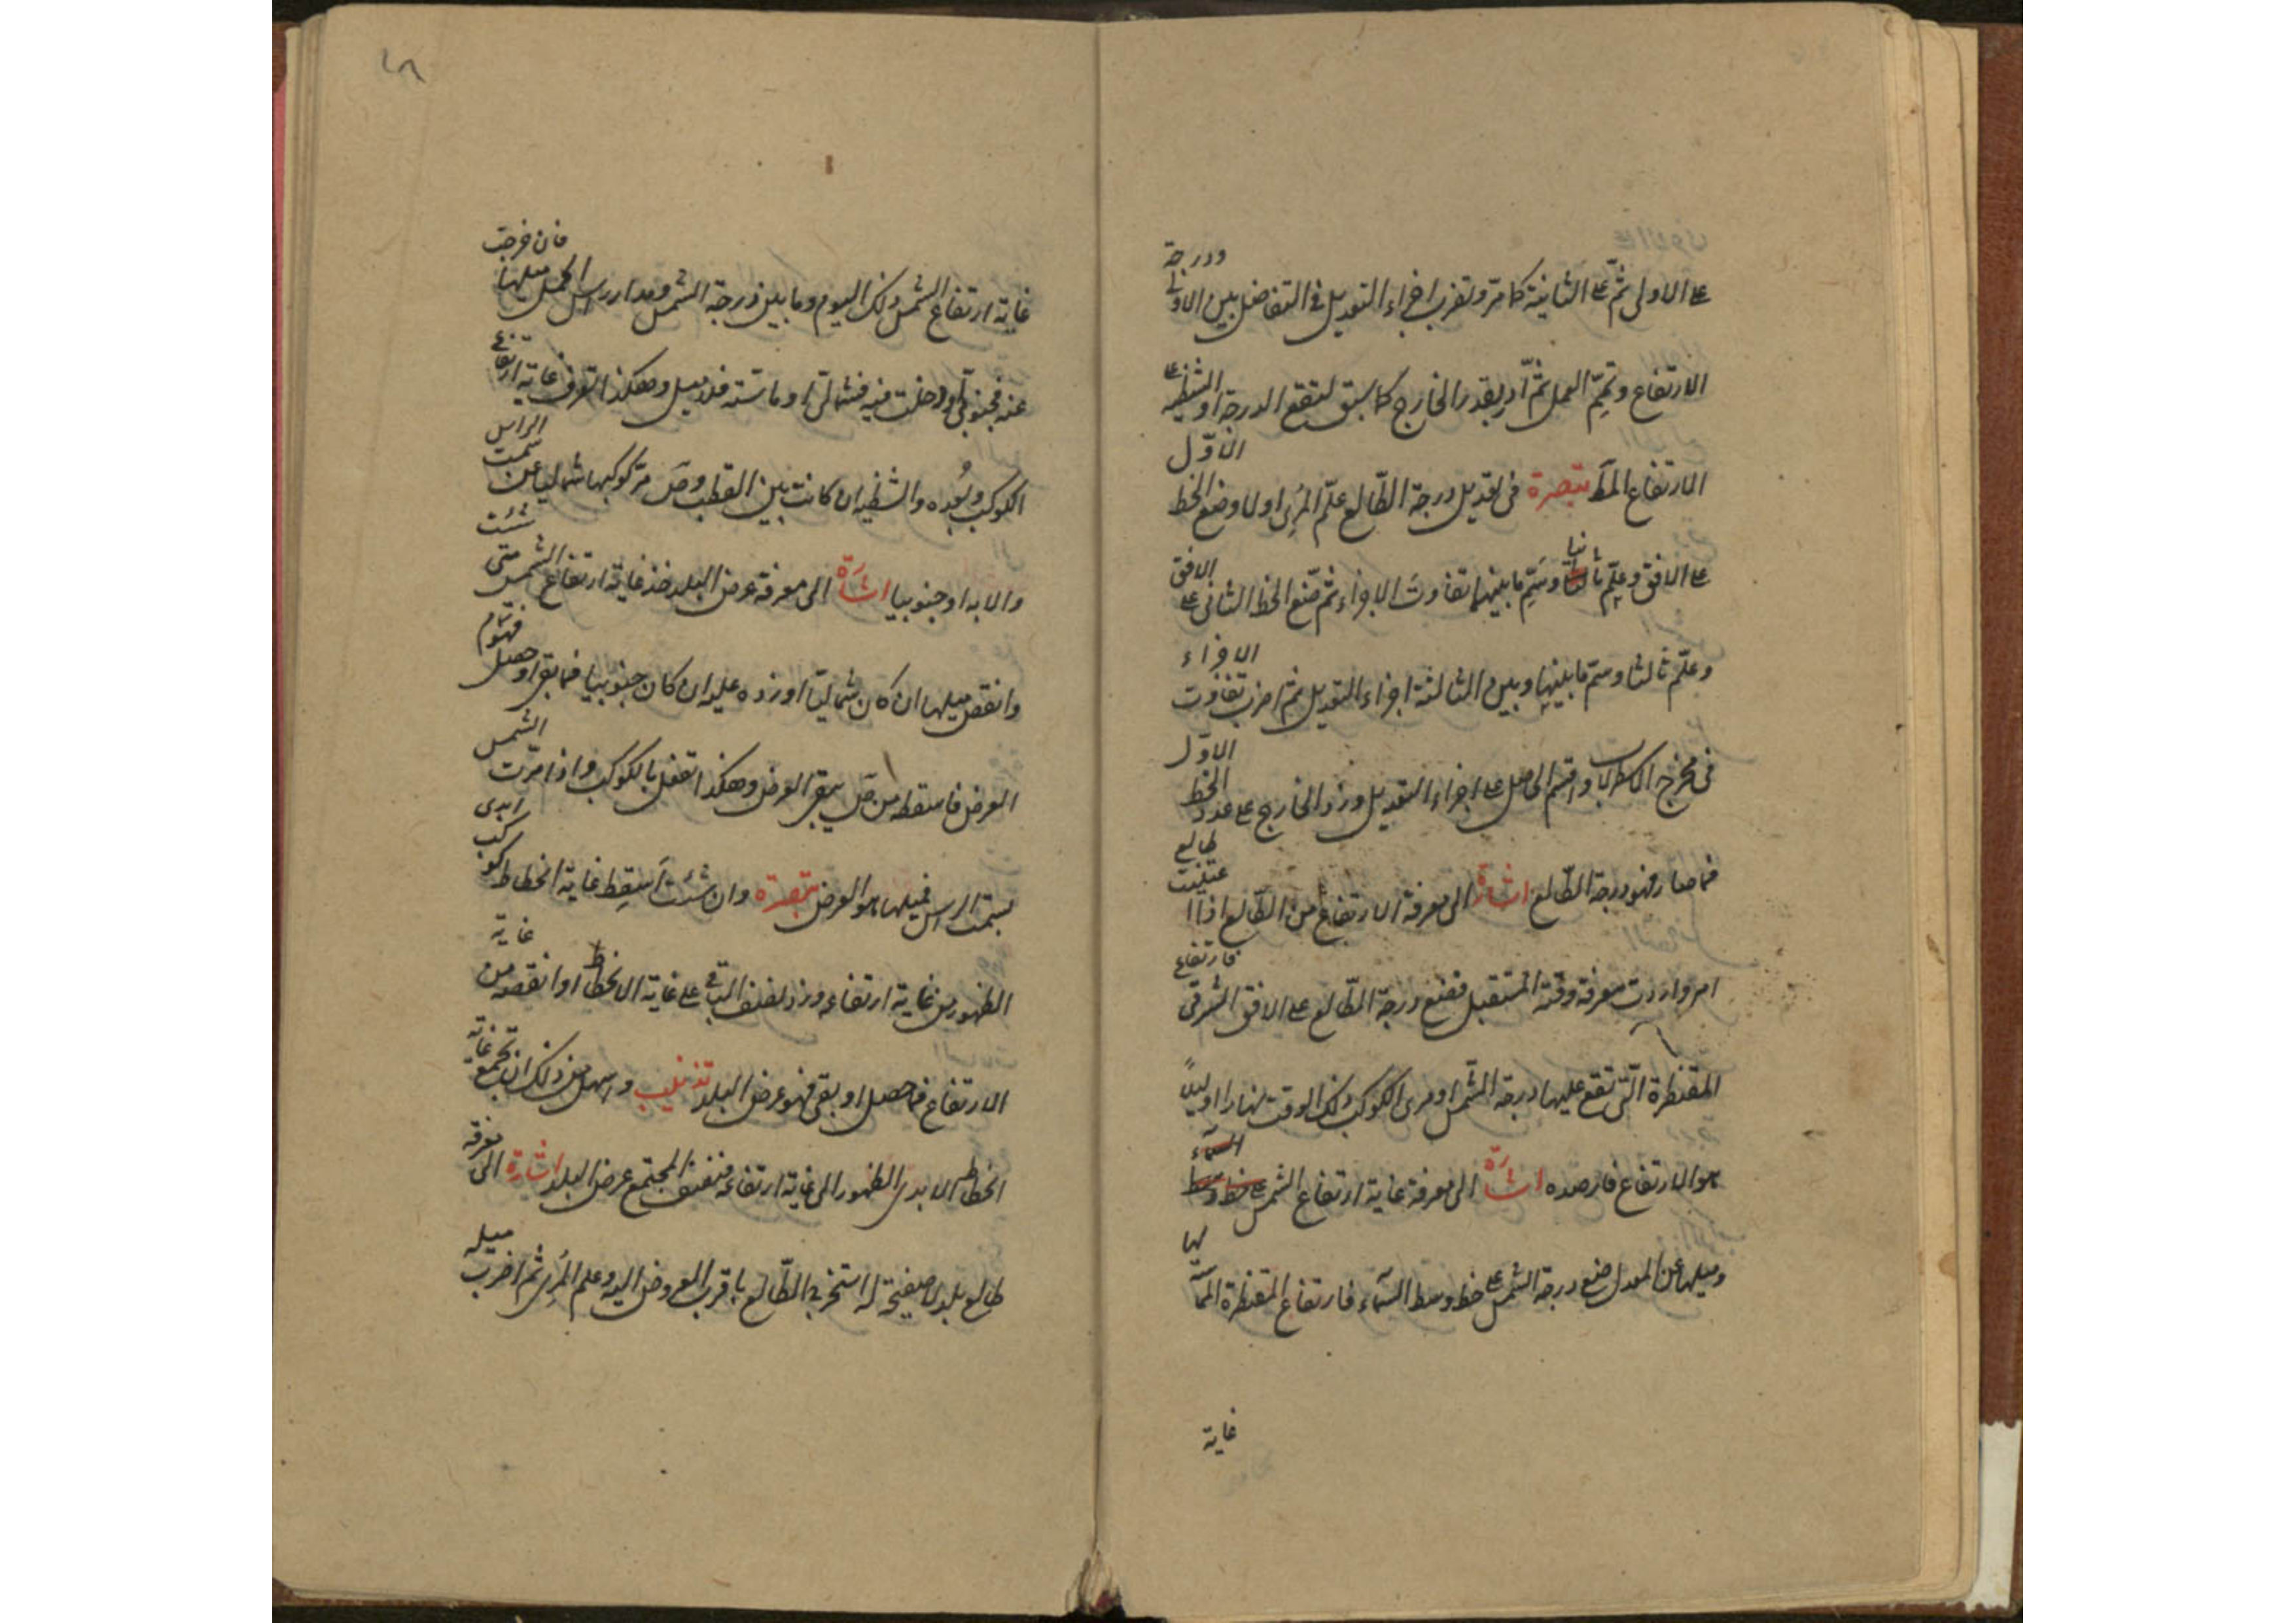 على الاولى ثم على الثانية كما مر وتضرب اجزاء التعديل فى التفاضل بين الاولى ودرجة
الارتفاع وتتم العمل ثم ادر بقدر الخارج كما سبق لتقع الدرجة او الشظية على
الارتفاع المذكور تبصرة فى تعديل درجة الطالع علم المرى اولا وضع الخط الاول
على الافق وعلم ثانيا وسم ما بينهما تفاوت الاجزاء ثم ضع الخط الثانى على الافق
وعلم ثالثا وسم ما بينها وبين الثالثة اجزاء التعديل ثم اضرب تفاوت الاجزاء
فى مخرج الاسطرلاب واقسم الحاصل على اجزاء التعديل وزد الخارج على عدد الخط الاول
فما صار فهو درجة الطالع اشارة الى معرفة الارتفاع من الطالع اذا عينت طالع
امر واردت معرفة وقته المستقبل فضع درجة الطالع على الافق الشرقى فارتفاع
المقنطرة التى تقع عليها درجة الشمس او مرى الكوكب ذلك الوقت نهارا او ليلا
هو الارتفاع فارصده اشارة الى معرفة غاية ارتفاع الشمس على خط وسط السماء
وميلها عن المعدل ضع درجة الشمس على خط وسط السماء فارتفاع المقنطرة المماسة لها
غاية
٤٨
غاية ارتفاع الشمس ذلك اليوم وما بين درجة الشمس ومدار راس الحمل ميلها فان خرجت
عنه فجنوبى او دخلت فيه فشمالى او ماسته فلا ميل وهكذا تعرف غاية ارتفاع
الكوكب وبعده والشظية ان كانت بين القطب وص مر كوكبها شماليا عن سمت الراس
والا به او جنوبيا اشارة الى معرفة عرض البلد خذ غاية ارتفاع الشمس متى شئت
وانقص ميلها ان كان شماليا او زده عليه ان كان جنوبيا فما بقى او حصل فهو تمام
العرض فاسقطه من ص يبقى العرض وهكذا تفعل بالكوكب واذا مرت الشمس
بسمت الراس فميلها هو العرض تبصرة وان شئت اسقط غاية انحطاط كوكب ابدى
الظهور من غاية ارتفاعه وزد نصف الباقى على غاية الانحطاط او انقصه من غاية
الارتفاع فما حصل او بقى فهو عرض البلد تذنيب واسهل من ذلك ان تجمع غاية
انحطاط الابدى الظهور الى غاية ارتفاعه فنصف المجتمع عرض البلد اشارة الى معرفة
طالع بلد لا صفيحة له استخرج الطالع باقرب المعروض اليه وعلم المرى ثم اضرب ميله